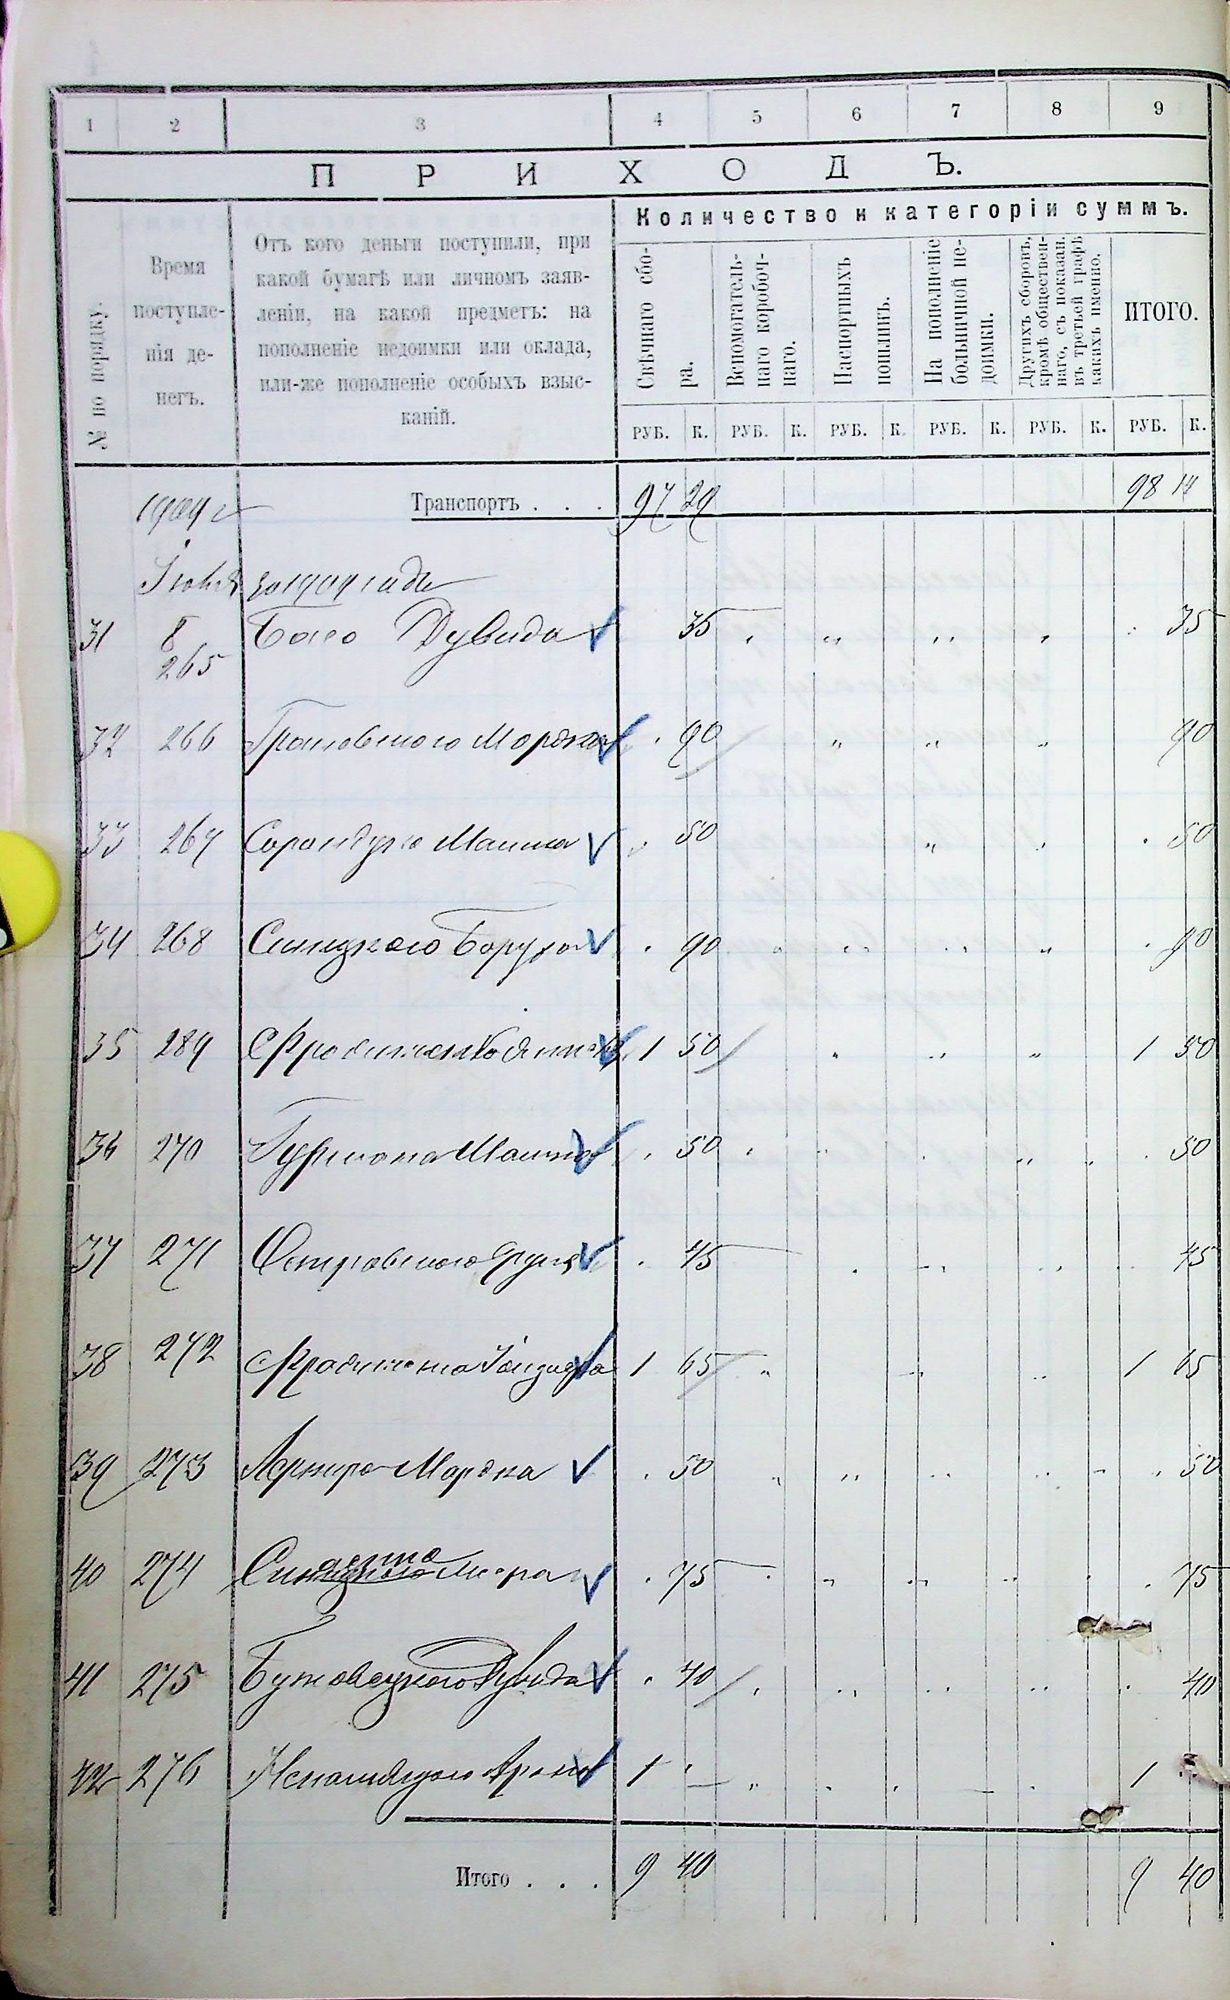 1 2 3 4 5 6 7 8 9
ПРИХОДЪ.
Количество и категоріи суммъ.
№ по порядку.
Время
поступле-
нія де-
негъ.
Отъ кого деньги поступили, при
какой бумагѣ или личномъ заяв-
леніи, на какой предметъ: на
пополненіе недоимки или оклада,
или-же пополненіе особыхъ взыс-
каній.
Свѣчнаго сбо-
ра.
Вспомогатель-
наго коробоч-
наго.
Паспортныхъ
пошлинъ.
На пополненіе
больничной не-
доимки.
Другихъ сборовъ,
кромѣ обществен-
наго, съ показан.
въ третьей графѣ
какихъ именно.
ИТОГО.
РУБ. К. РУБ. К. РУБ. К. РУБ. К. РУБ. К. РУБ. К.
1909 г Транспортъ . . . 97 29 98 14
Іюля за 1909 годъ
31 8 Дувида 35 35
265
32 266 Мордка 90 90
33 267 Машка 50 50
34 268 Синицкого Боруха 90 90
35 289 1 50 1 50
36 270 Гурмана 50 50
37 271 Островского 45 45
38 272 1 65 1 65
39 273 Мордка 50 50
40 274 75 75
41 275 Дувида 40 40
42 276 Арона 1 1
Итого . . . 9 40 9 40